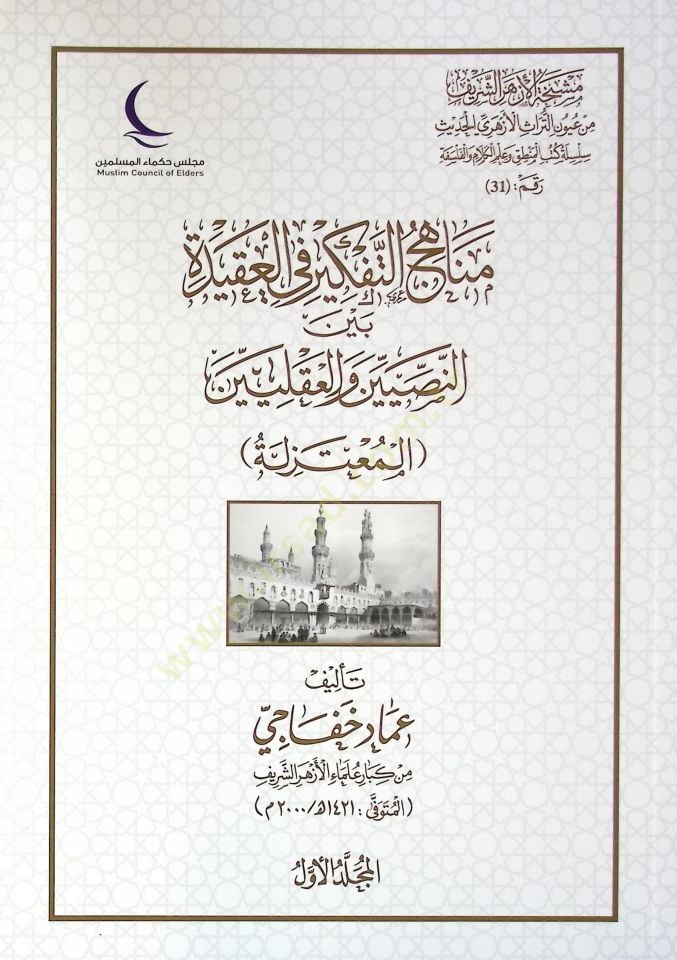 مشيخة الأزهر الشريف
من عيون التراث الأزهري الحديث
سلسلة كتب المنطق وعلم الكلام والفلسفة
رقم: (31)
مجلس حكماء المسلمين
Muslim Council of Elders
مَنَاهِجُ التَّفْكِيرِ فِي العَقِيدَةِ
بَيْنَ
النَّصِّيِّينَ وَالعَقْلِيِّينَ
(المُعْتَزِلَةُ)
تَأليف
عماد خفاجي
من كبار علماء الأزهر الشريف
(المتوفَّى: ١٤٢١هـ/٢٠٠٠م)
المُجلَّدُ الأوَّلُ